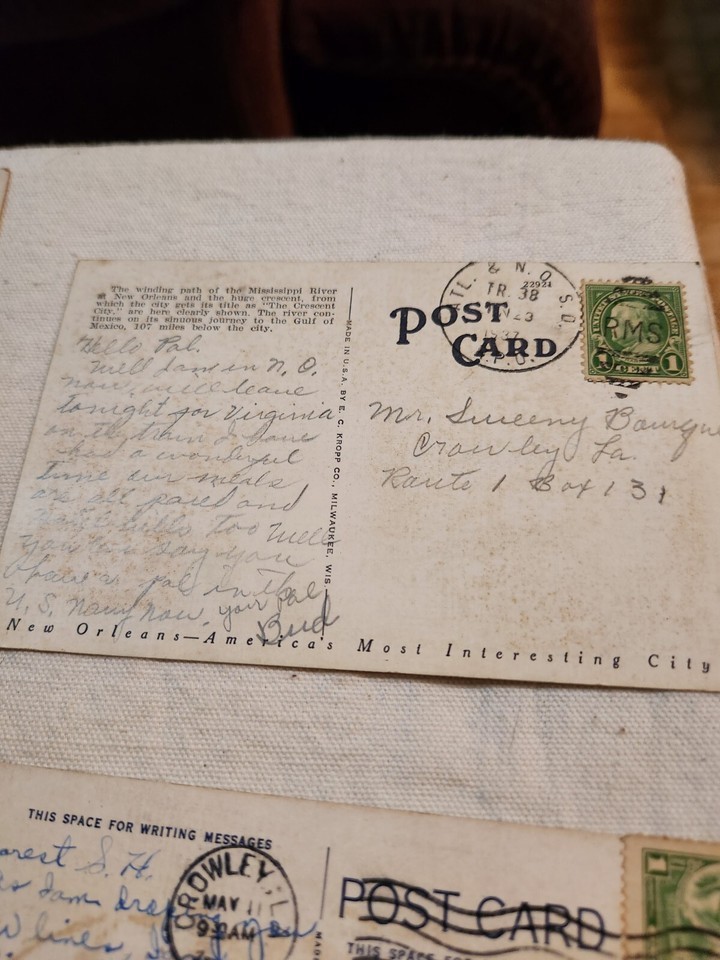 The winding path of the Mississippi River
at New Orleans and the huge crescent, from
which the city gets its title as "The Crescent
City," are here clearly shown. The river con-
tinues on its sinuous journey to the Gulf of
Mexico, 107 miles below the city.
Hello Pal.
Well I am in N. O.
now, will leave
tonight for Virginia
on train I have
had a wonderful
time our meals
are all paid and
hotel bills too Well
you can say you
have a pal in the
U. S. Navy now. your pal
Bud
MADE IN U.S.A. BY E. C. KROPP CO., MILWAUKEE, WIS.
22921
POST
CARD
TL. & N. O.
TR. 38
23
1937
R.P.O.
S.D.
RMS
UNITED STATES POSTAGE
1 CENT 1
Mr. Sweeny Bourque
Crowley La.
Route 1 Box 131
New Orleans—America's Most Interesting City
THIS SPACE FOR WRITING MESSAGES
arest S. H.
As I am dropping you
lines,
CROWLEY
MAY 11
9 AM
POST CARD
THIS SPACE FO